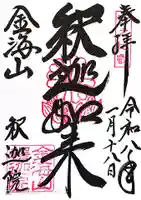 奉拝
令和八年
一月十八日
釈迦如来
金海山
釈迦院